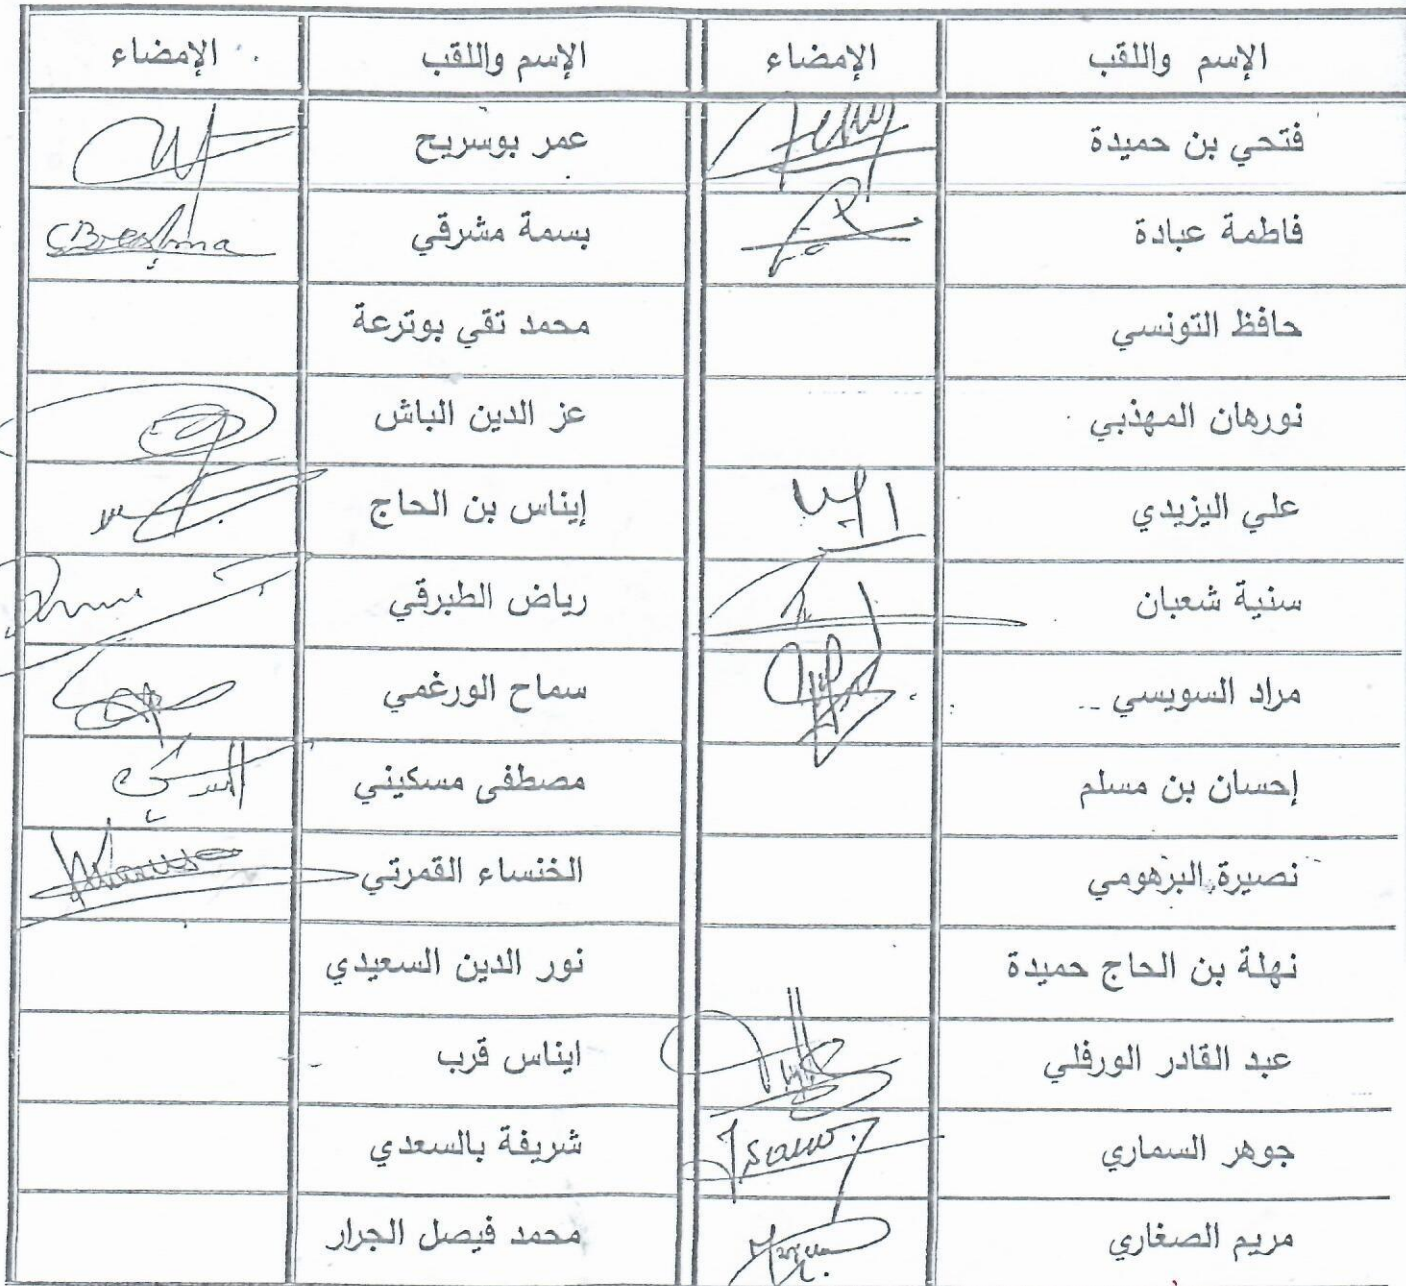 الإسم واللقب الإمضاء الإسم واللقب الإمضاء
فتحي بن حميدة عمر بوسريح
فاطمة عبادة بسمة مشرقي
حافظ التونسي محمد تقي بوترعة
نورهان المهذبي عز الدين الباش
علي اليزيدي إيناس بن الحاج
سنية شعبان رياض الطبرقي
مراد السويسي سماح الورغمي
إحسان بن مسلم مصطفى مسكيني
نصيرة البرهومي الخنساء القمرتي
نهلة بن الحاج حميدة نور الدين السعيدي
عبد القادر الورفلي ايناس قرب
جوهر السماري شريفة بالسعدي
مريم الصغاري محمد فيصل الجرار